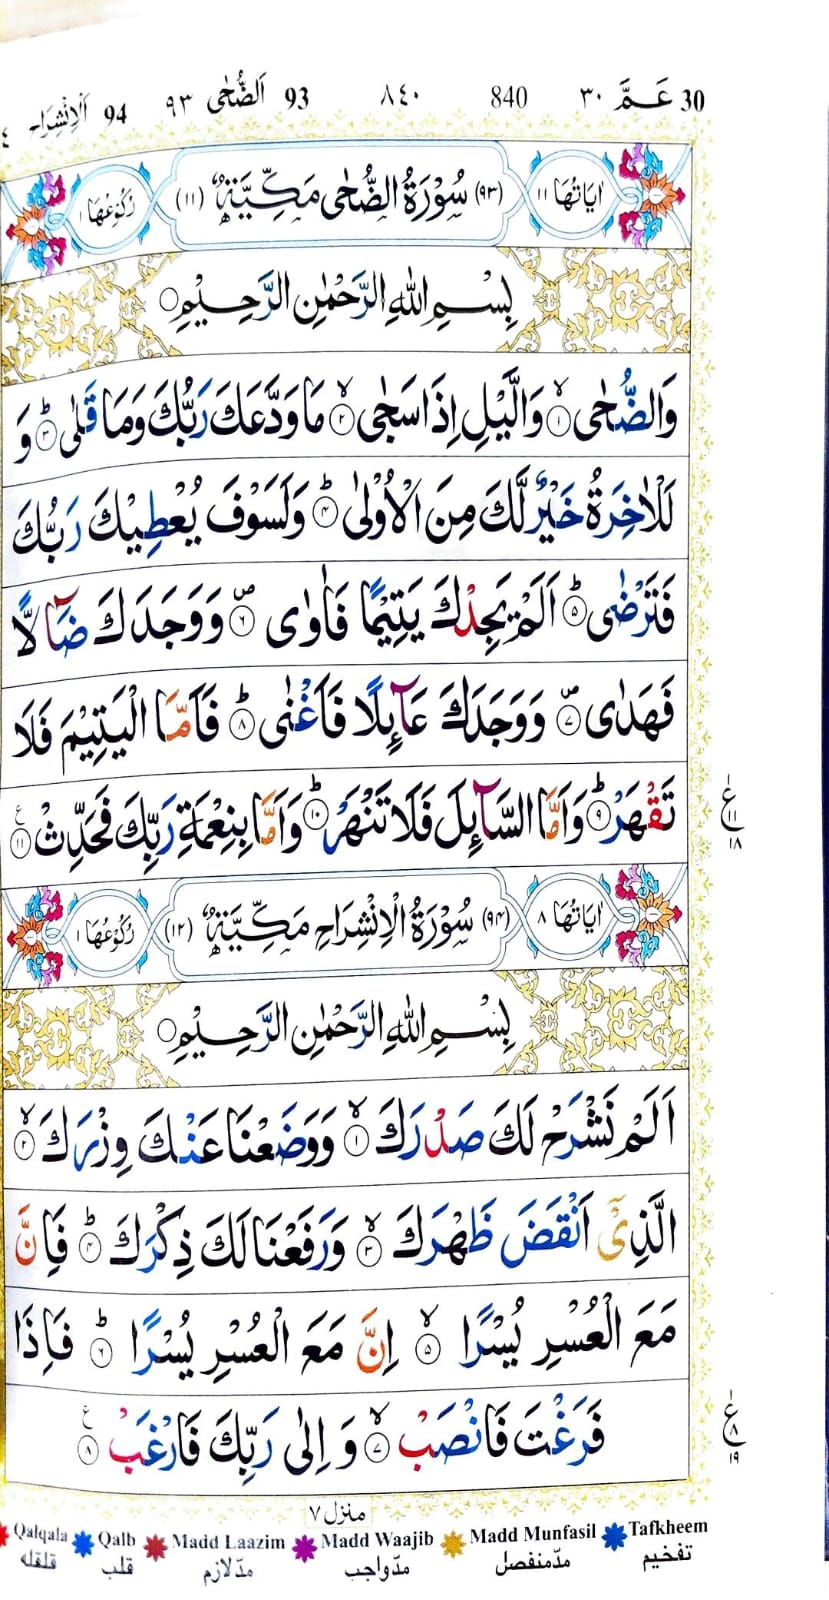 30 عَـمَّ ٣٠ 840 ٨٤٠ 93 اَلضُّحٰى ٩٣ 94 اَلْاِنْشِرَاح
اٰيَاتُهَا ١١ (٩٣) سُوْرَةُ الضُّحٰى مَكِّيَّةٌ (١١) رُكُوْعُهَا ١
بِسْمِ اللّٰهِ الرَّحْمٰنِ الرَّحِيْمِ
وَالضُّحٰى ۙ‏﴿١﴾ وَالَّيْلِ اِذَا سَجٰى ۙ‏﴿٢﴾ مَا وَدَّعَكَ رَبُّكَ وَمَا قَلٰى ؕ‏﴿٣﴾ وَ
لَلْاٰخِرَةُ خَيْرٌ لَّكَ مِنَ الْاُوْلٰى ؕ‏﴿٤﴾ وَلَسَوْفَ يُعْطِيْكَ رَبُّكَ
فَتَرْضٰى ؕ‏﴿٥﴾ اَلَمْ يَجِدْكَ يَتِيْمًا فَاٰوٰى ۪‏﴿٦﴾ وَوَجَدَكَ ضَآلًّا
فَهَدٰى ۪‏﴿٧﴾ وَوَجَدَكَ عَآئِلًا فَاَغْنٰى ؕ‏﴿٨﴾ فَاَمَّا الْيَتِيْمَ فَلَا
تَقْهَرْ ؕ‏﴿٩﴾ وَاَمَّا السَّآئِلَ فَلَا تَنْهَرْ ؕ‏﴿١٠﴾ وَاَمَّا بِنِعْمَةِ رَبِّكَ فَحَدِّثْ ﴿١١﴾ ع
ع ١١ ١٨
اٰيَاتُهَا ٨ (٩٤) سُوْرَةُ الْاِنْشِرَاحِ مَكِّيَّةٌ (١٢) رُكُوْعُهَا ١
بِسْمِ اللّٰهِ الرَّحْمٰنِ الرَّحِيْمِ
اَلَمْ نَشْرَحْ لَكَ صَدْرَكَ ۙ‏﴿١﴾ وَوَضَعْنَا عَنْكَ وِزْرَكَ ۙ‏﴿٢﴾
الَّذِىْٓ اَنْقَضَ ظَهْرَكَ ۙ‏﴿٣﴾ وَرَفَعْنَا لَكَ ذِكْرَكَ ؕ‏﴿٤﴾ فَاِنَّ
مَعَ الْعُسْرِ يُسْرًا ۙ‏﴿٥﴾ اِنَّ مَعَ الْعُسْرِ يُسْرًا ؕ‏﴿٦﴾ فَاِذَا
فَرَغْتَ فَانْصَبْ ۙ‏﴿٧﴾ وَ اِلٰى رَبِّكَ فَارْغَبْ ﴿٨﴾ ع
ع ٨ ١٩
منزل ٧
Qalqala Qalb Madd Laazim Madd Waajib Madd Munfasil Tafkheem
قلقله قلب مدّلازم مدّواجب مدّمنفصل تفخيم